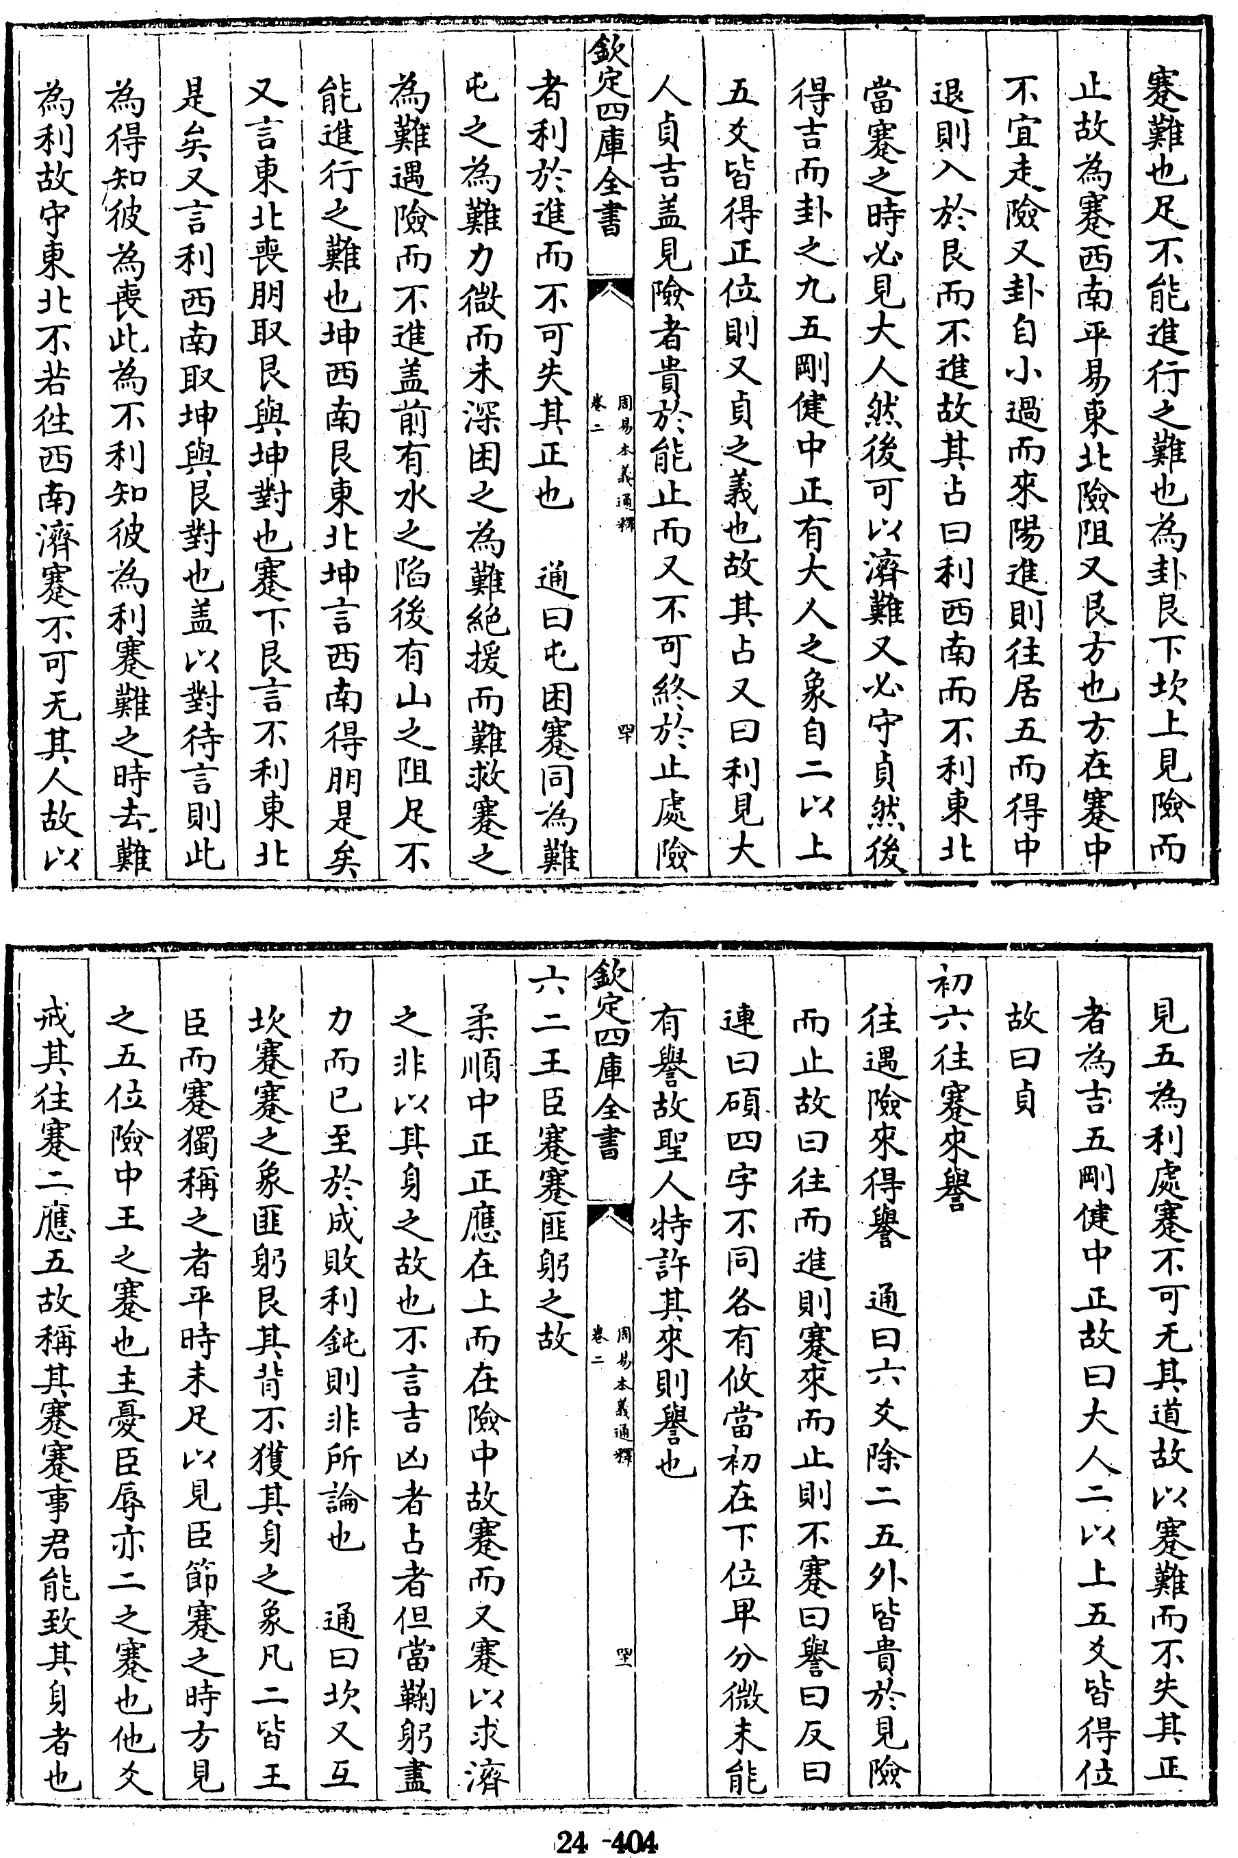 蹇難也足不能進行之難也為卦艮下坎上見險而
止故為蹇西南平易東北險阻又艮方也方在蹇中
不宜走險又卦自小過而來陽進則往居五而得中
退則入於艮而不進故其占曰利西南而不利東北
當蹇之時必見大人然後可以濟難又必守貞然後
得吉而卦之九五剛健中正有大人之象自二以上
五爻皆得正位則又貞之義也故其占又曰利見大
人貞吉盖見險者貴於能止而又不可終於止處險
欽定四庫全書
周易本義通釋
卷二
罕
者利於進而不可失其正也　通曰屯困蹇同為難
屯之為難力微而未深困之為難絕援而難救蹇之
為難遇險而不進盖前有水之陷後有山之阻足不
能進行之難也坤西南艮東北坤言西南得朋是矣
又言東北喪朋取艮與坤對也蹇下艮言不利東北
是矣又言利西南取坤與艮對也盖以對待言則此
為得知彼為喪此為不利知彼為利蹇難之時去難
為利故守東北不若往西南濟蹇不可无其人故以
見五為利處蹇不可无其道故以蹇難而不失其正
者為吉五剛健中正故曰大人二以上五爻皆得位
故曰貞
初六往蹇來譽
往遇險來得譽　通曰六爻除二五外皆貴於見險
而止故曰往而進則蹇來而止則不蹇曰譽曰反曰
連曰碩四字不同各有攸當初在下位卑分微未能
有譽故聖人特許其來則譽也
欽定四庫全書
周易本義通釋
卷二
六二王臣蹇蹇匪躬之故
柔順中正正應在上而在險中故蹇而又蹇以求濟
之非以其身之故也不言吉凶者占者但當鞠躬盡
力而已至於成敗利鈍則非所論也　通曰坎又互
坎蹇蹇之象匪躬艮其背不獲其身之象凡二皆王
臣而蹇獨稱之者平時未足以見臣節蹇之時方見
之五位險中王之蹇也主憂臣辱亦二之蹇也他爻
戒其往蹇二應五故稱其蹇蹇事君能致其身者也
24-404